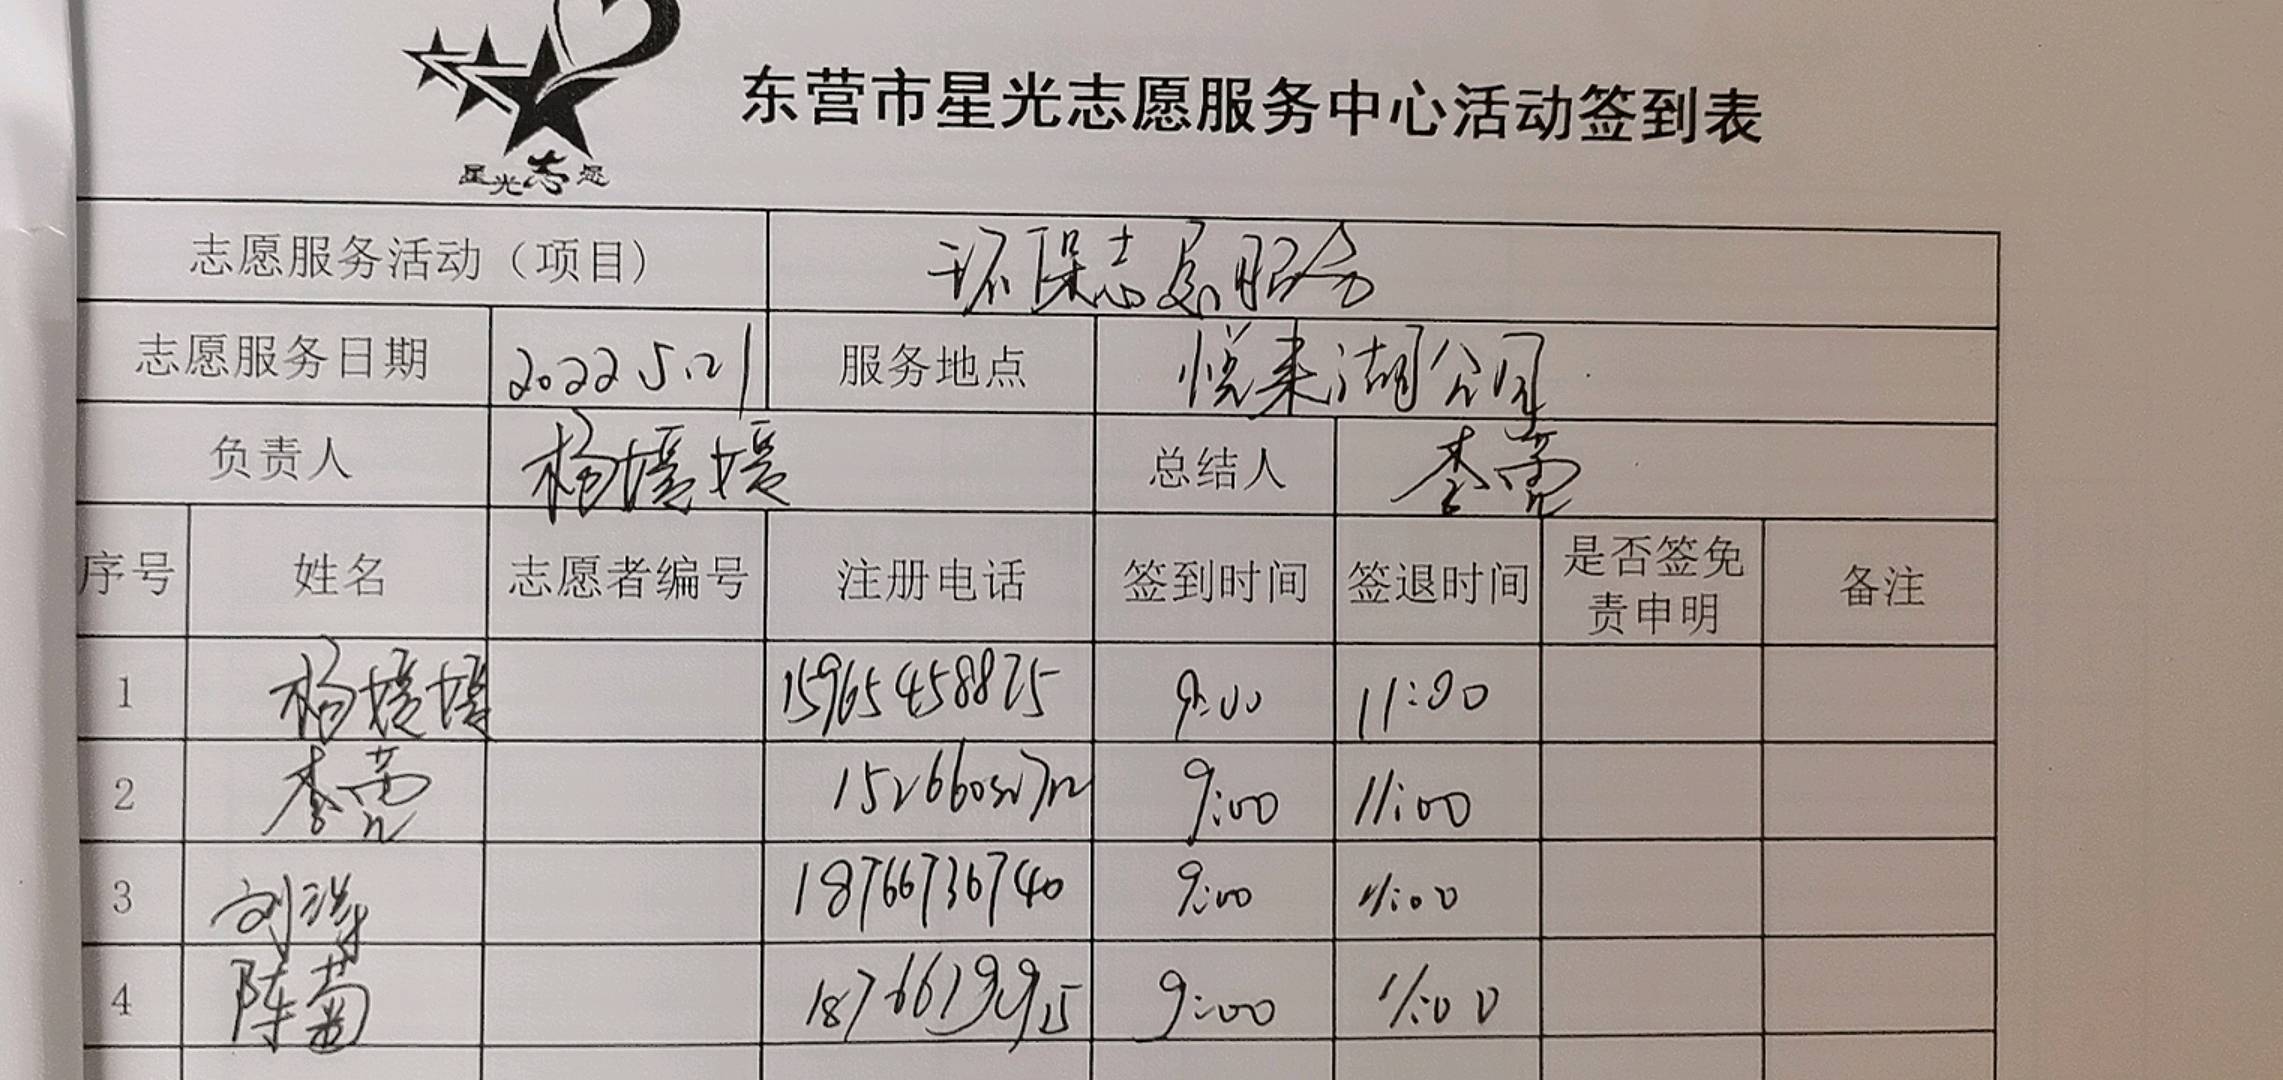 星光志愿
东营市星光志愿服务中心活动签到表
志愿服务活动（项目） 环保志愿服务
志愿服务日期 2022 5.21 服务地点 悦来湖公园
负责人 杨媛媛 总结人 李莞
序号 姓名 志愿者编号 注册电话 签到时间 签退时间 是否签免责申明 备注
1 杨媛媛 15965458875 9:00 11:00
2 李莞 9:00 11:00
3 刘洋 18766736740 9:00 11:00
4 陈菊 9:00 11:00